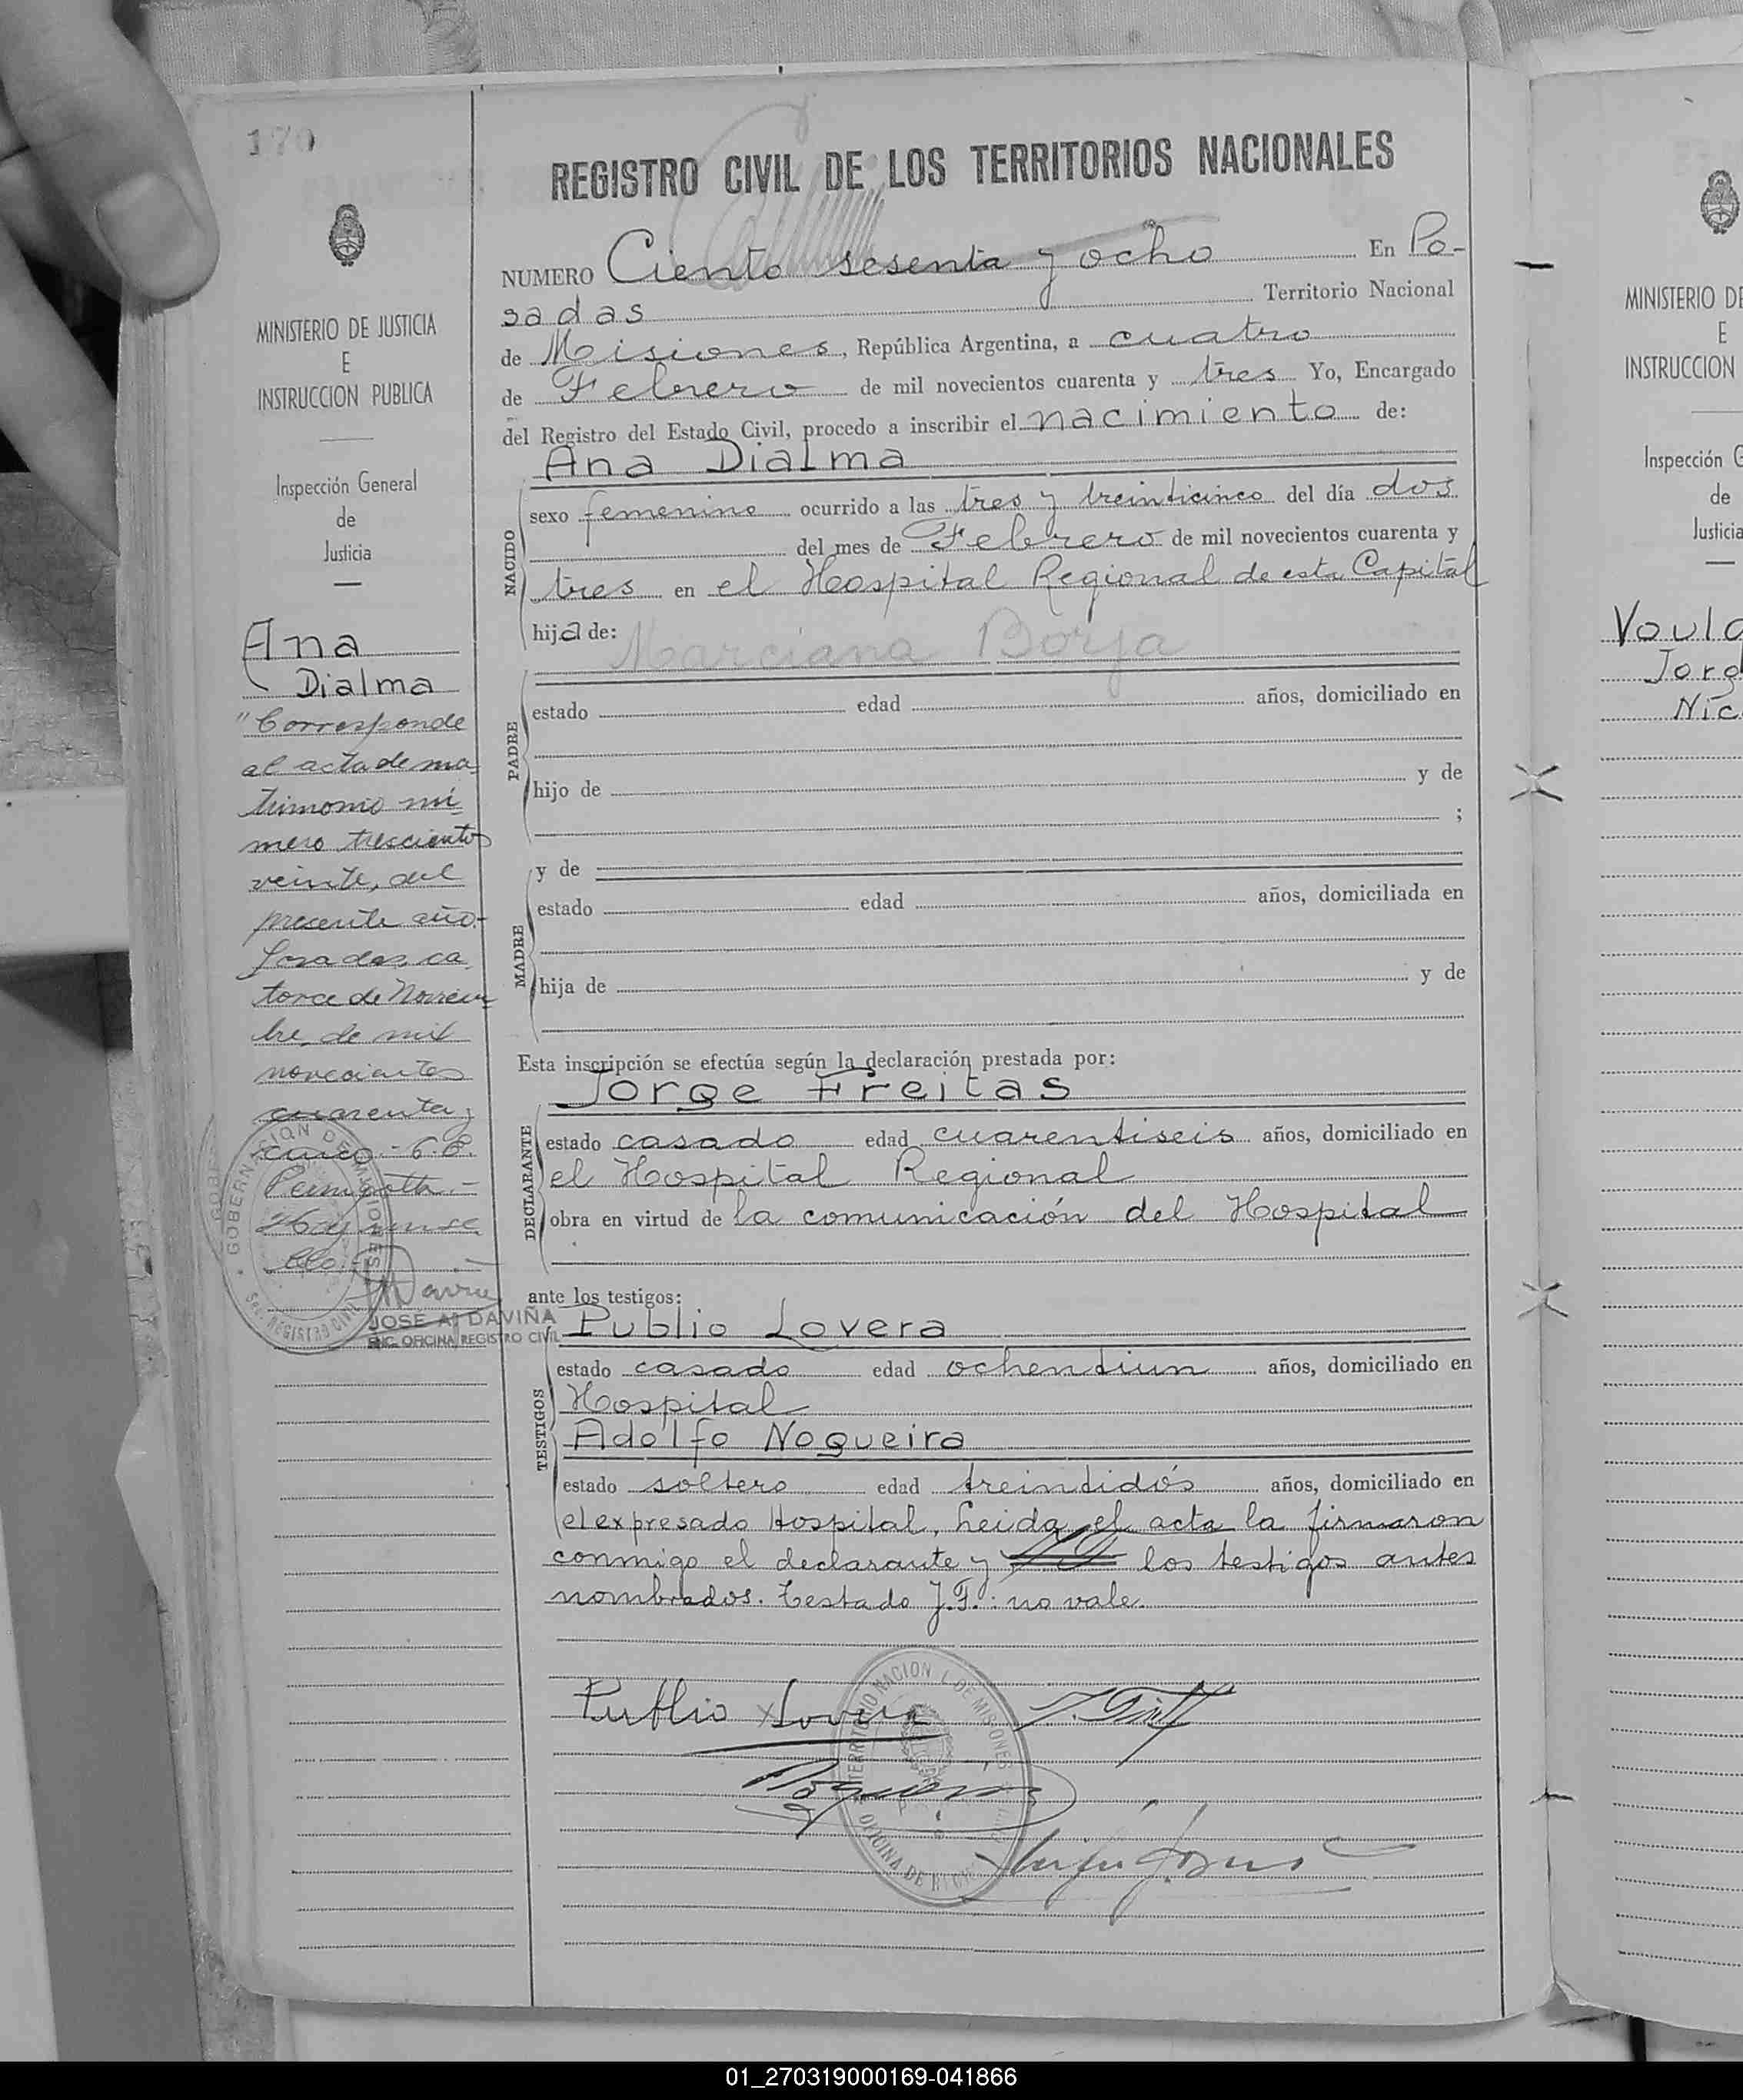 170
REGISTRO CIVIL DE LOS TERRITORIOS NACIONALES
NUMERO Ciento sesenta y ocho En Po-
sadas Territorio Nacional
de Misiones, República Argentina, a cuatro
de Febrero de mil novecientos cuarenta y tres Yo, Encargado
del Registro del Estado Civil, procedo a inscribir el nacimiento de:
Ana Dialma
NACIDO
sexo femenino ocurrido a las tres y treinticinco del día dos
del mes de Febrero de mil novecientos cuarenta y
tres en el Hospital Regional de esta Capital
hija de:
Marciana Borja
PADRE
estado edad años, domiciliado en
hijo de y de
;
y de
MADRE
estado edad años, domiciliada en
hija de y de
Esta inscripción se efectúa según la declaración prestada por:
Jorge Freitas
DECLARANTE
estado casado edad cuarentiseis años, domiciliado en
el Hospital Regional
obra en virtud de la comunicación del Hospital
ante los testigos:
Publio Lovera
TESTIGOS
estado casado edad ochentiun años, domiciliado en
Hospital
Adolfo Nogueira
estado soltero edad treintidós años, domiciliado en
el expresado Hospital, Leida el acta la firmaron
conmigo el declarante y los testigos antes
nombrados. Testado J.F.: no vale.
Publio Lovera
TERRITORIO NACIONAL DE MISIONES
OFICINA DE
MINISTERIO DE JUSTICIA
E
INSTRUCCION PUBLICA
Inspección General
de
Justicia
Ana
Dialma
"Corresponde
al acta de ma
trimonio nú
mero trescientos
veinte, del
presente año.-
Posadas, ca
torce de Noviem
bre, de mil
novecientos
cuarenta y
cinco.-
GOBERNACION DE MISIONES
REGISTRO CIVIL
JOSE A. DAVIÑA
ENC. OFICINA REGISTRO CIVIL
MINISTERIO DE
E
INSTRUCCION
Inspección G
de
Justicia
Voula
Jorg
Nic
01_270319000169-041866